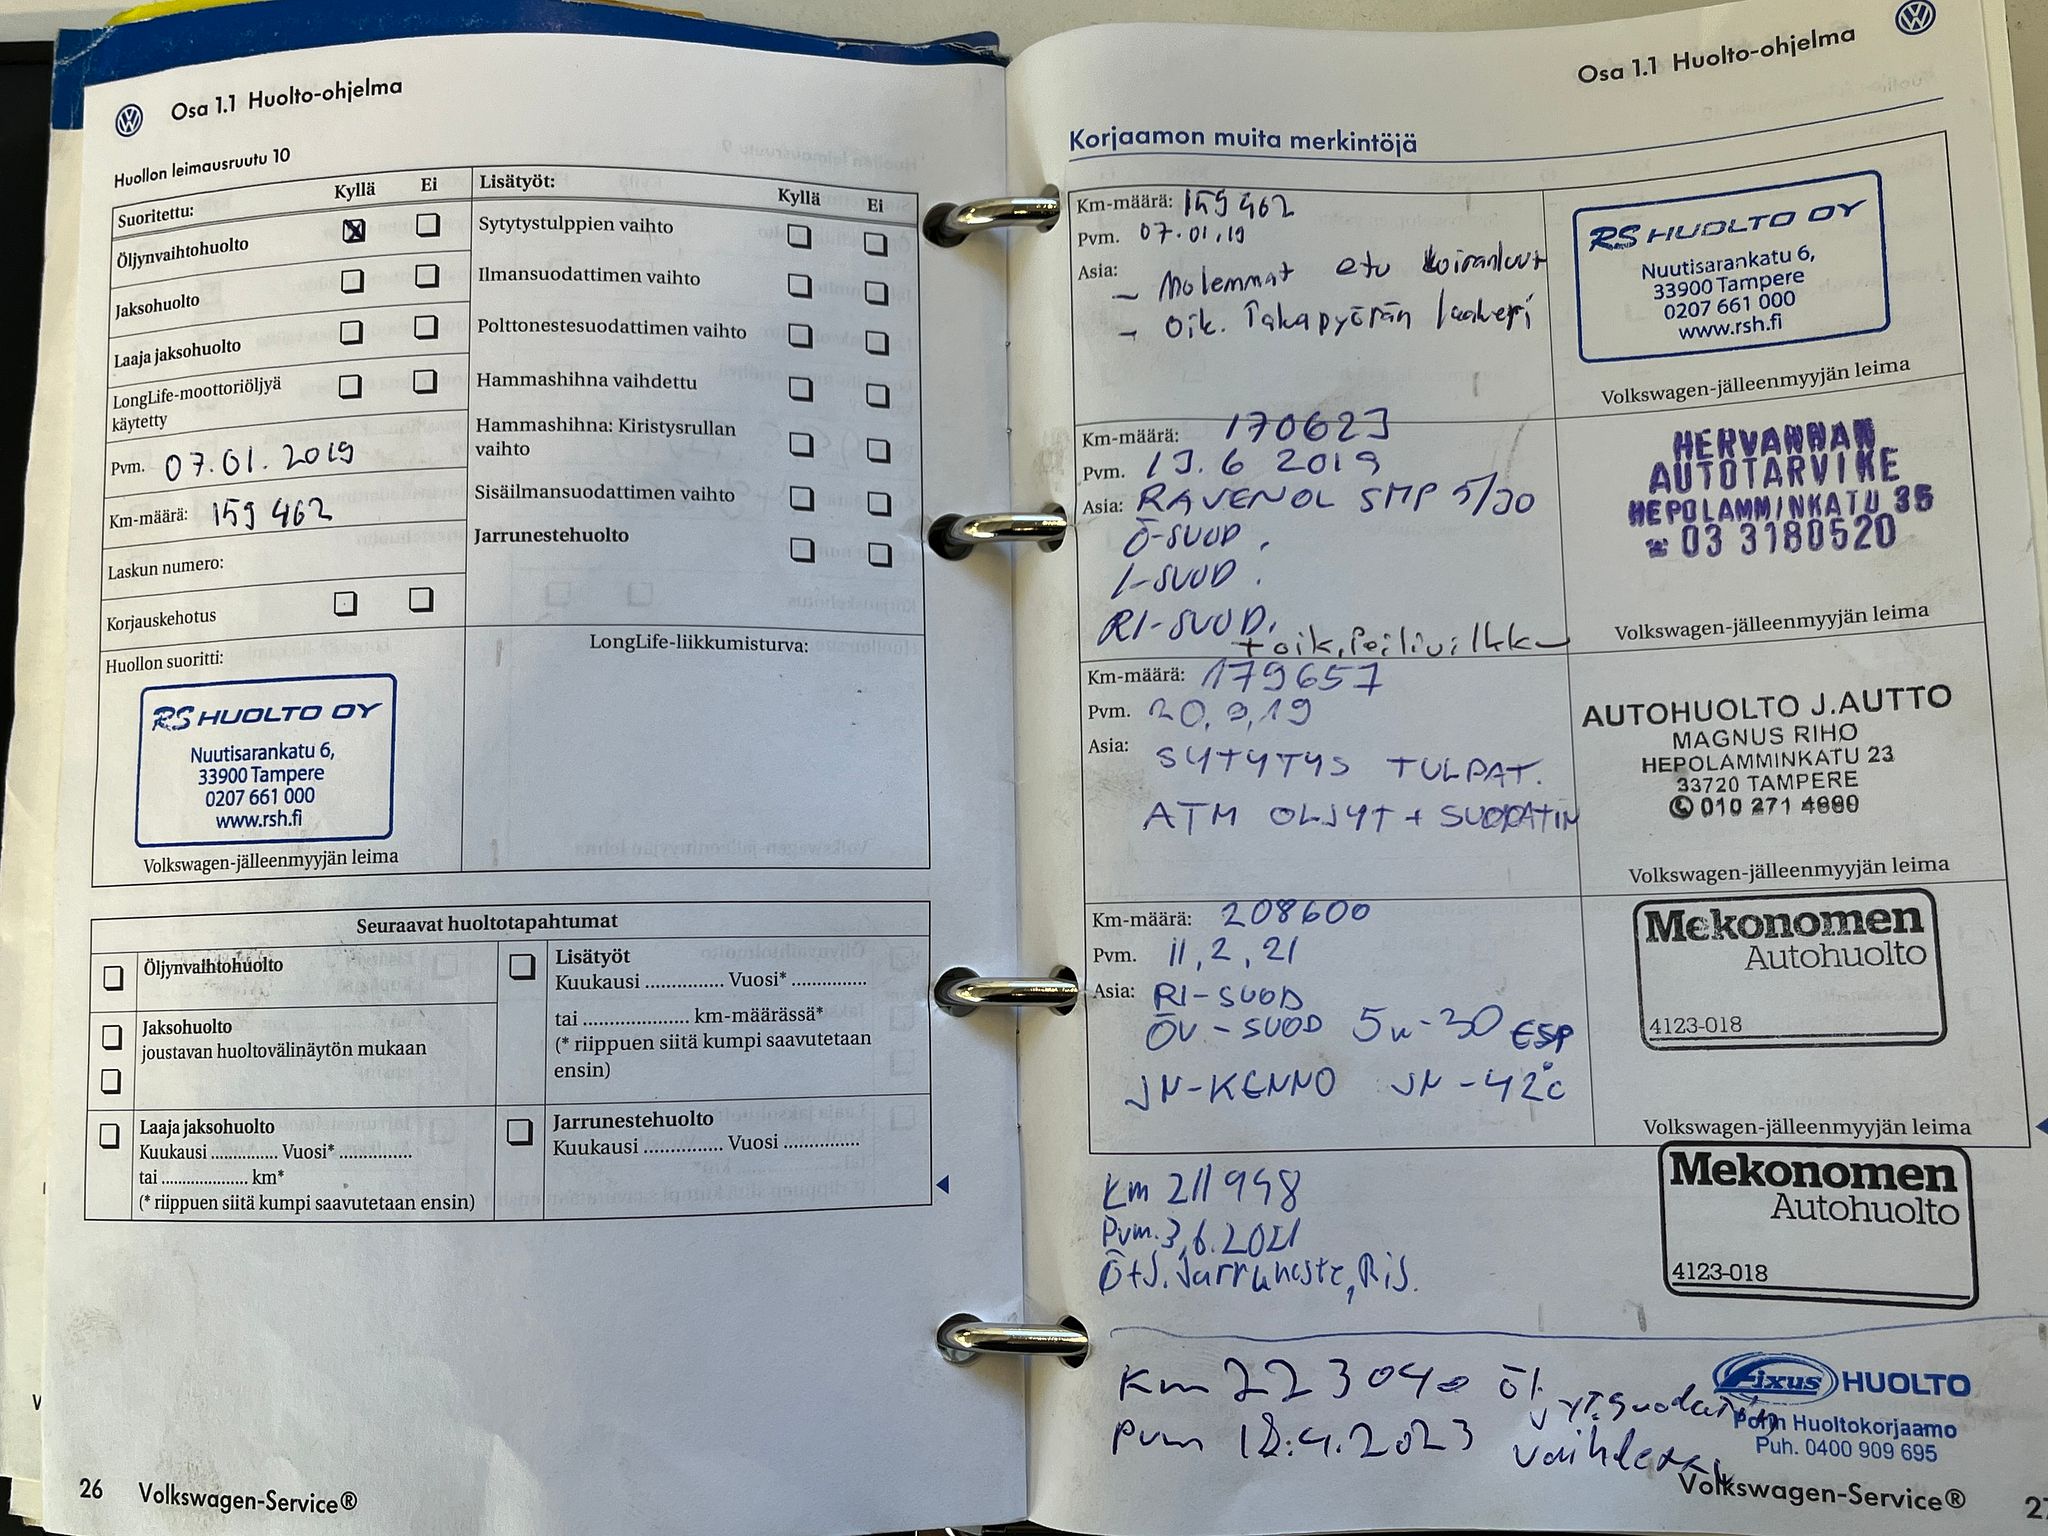 Osa 1.1 Huolto-ohjelma
Huollon leimausruutu 10
Suoritettu: Kyllä Ei
Öljynvaihtohuolto
Jaksohuolto
Laaja jaksohuolto
LongLife-moottoriöljyä
käytetty
Pvm. 07.01.2019
Km-määrä: 159 462
Laskun numero:
Korjauskehotus
Huollon suoritti:
RS HUOLTO OY
Nuutisarankatu 6,
33900 Tampere
0207 661 000
www.rsh.fi
Volkswagen-jälleenmyyjän leima
Lisätyöt: Kyllä Ei
Sytytystulppien vaihto
Ilmansuodattimen vaihto
Polttonestesuodattimen vaihto
Hammashihna vaihdettu
Hammashihna: Kiristysrullan
vaihto
Sisäilmansuodattimen vaihto
Jarrunestehuolto
LongLife-liikkumisturva:
Seuraavat huoltotapahtumat
Öljynvaihtohuolto
Jaksohuolto
joustavan huoltovälinäytön mukaan
Laaja jaksohuolto
Kuukausi .............. Vuosi* ...............
tai .................. km*
(* riippuen siitä kumpi saavutetaan ensin)
Lisätyöt
Kuukausi ................ Vuosi* ...............
tai ...................... km-määrässä*
(* riippuen siitä kumpi saavutetaan
ensin)
Jarrunestehuolto
Kuukausi ................ Vuosi ...............
26 Volkswagen-Service®
Osa 1.1 Huolto-ohjelma
Korjaamon muita merkintöjä
Km-määrä: 159 462
Pvm. 07.01.19
Asia:
- Molemmat etu koiranluut
- Oik. Takapyörän laakeri
RS HUOLTO OY
Nuutisarankatu 6,
33900 Tampere
0207 661 000
www.rsh.fi
Volkswagen-jälleenmyyjän leima
Km-määrä: 170623
Pvm. 13.6 2019
Asia: RAVENOL SMP 5/30
Ö-SUOD.
I-SUOD.
RI-SUOD.
+ oik. Peilivilkku
HERVANNAN
AUTOTARVIKE
HEPOLAMMINKATU 36
☎ 03 3180520
Volkswagen-jälleenmyyjän leima
Km-määrä: 179657
Pvm. 20.9.19
Asia: SYTYTYS TULPAT.
ATM ÖLJYT + SUODATIN
AUTOHUOLTO J.AUTTO
MAGNUS RIHO
HEPOLAMMINKATU 23
33720 TAMPERE
010 271 4690
Volkswagen-jälleenmyyjän leima
Km-määrä: 208600
Pvm. 11,2,21
Asia: RI-SUOD
ÖV-SUOD 5W-30 ESP
JN-KENNO JN -42°C
Mekonomen
Autohuolto
4123-018
Volkswagen-jälleenmyyjän leima
Km 211948
Pvm. 3.6.2021
Ö+S. Jarruneste, Ris.
Mekonomen
Autohuolto
4123-018
Km 223040 öl
jyt, suodatin
Pvm 18.4.2023 vaihdettu
Fixus HUOLTO
Porin Huoltokorjaamo
Puh. 0400 909 695
Volkswagen-Service®